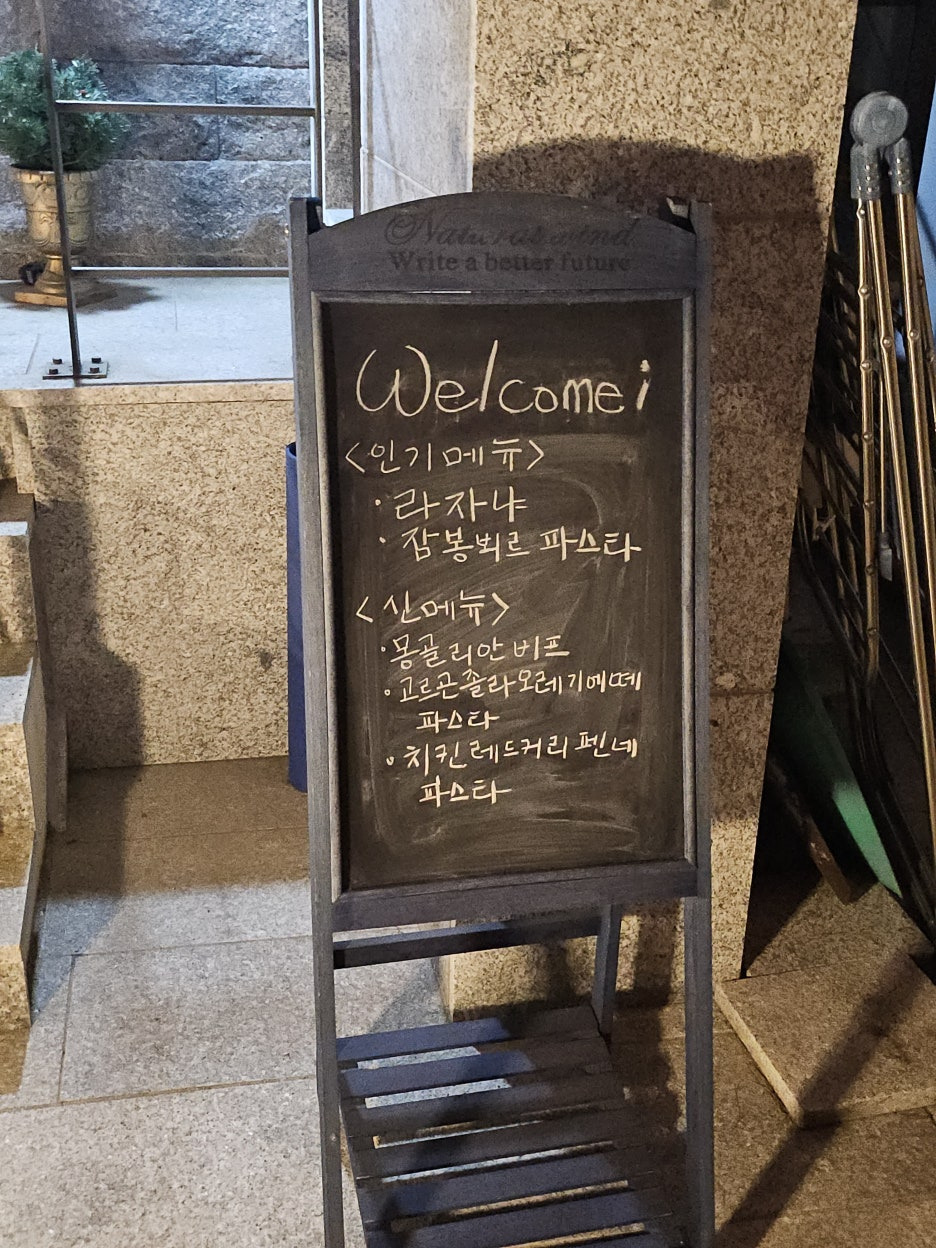 Naturaswind
Write a better future
Welcome!
<인기메뉴>
· 라자냐
· 잠봉뵈르 파스타
<신메뉴>
· 몽골리안 비프
· 고르곤졸라오레기에떼
파스타
· 치킨레드커리 펜네
파스타